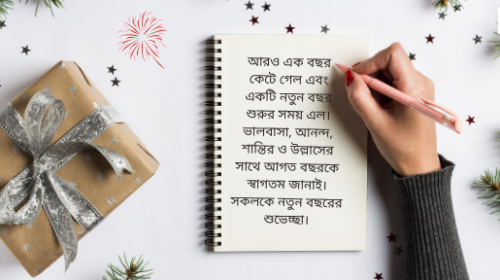 আরও এক বছর
কেটে গেল এবং
একটি নতুন বছর
শুরুর সময় এল।
ভালবাসা, আনন্দ,
শান্তির ও উল্লাসের
সাথে আগত বছরকে
স্বাগতম জানাই।
সকলকে নতুন বছরের
শুভেচ্ছা।